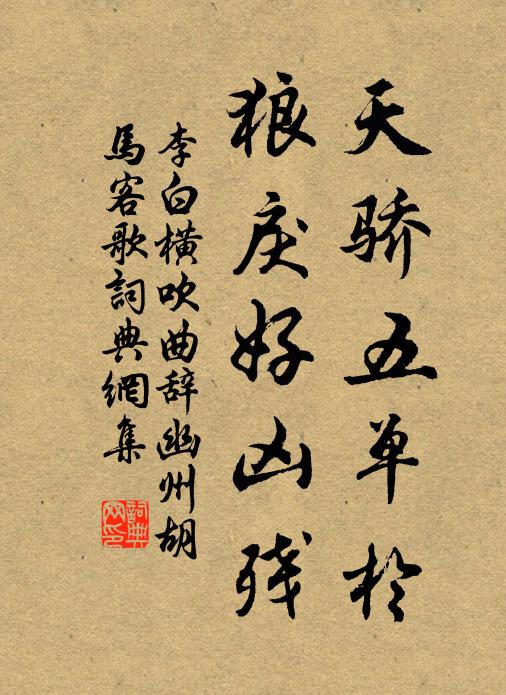 天骄五单於
狼戾好凶残
李白横吹曲辞幽州胡
馬客歌詞典網集
詞典
网印